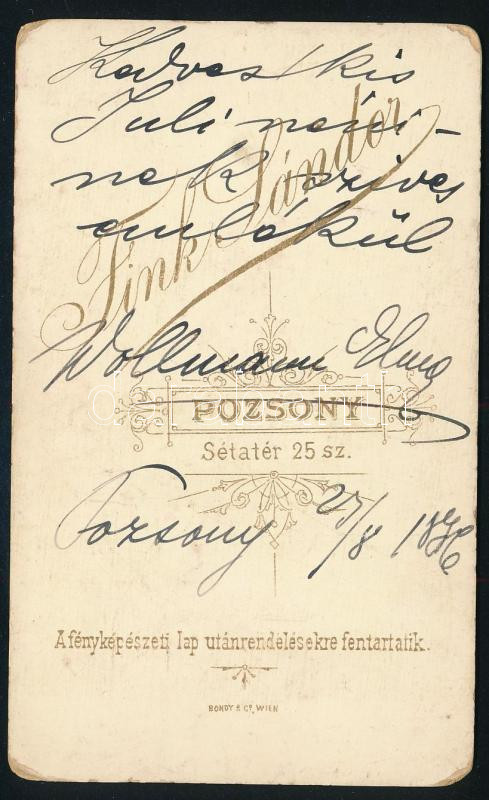 Kedves kis
Juli néni-
nek szives
emlékül
Fink Sándor
Wollmann Elma
POZSONY
Sétatér 25 sz.
Pozsony 27/8 1896
A fényképészeti lap utánrendelésekre fentartatik.
BONDY & Cº, WIEN